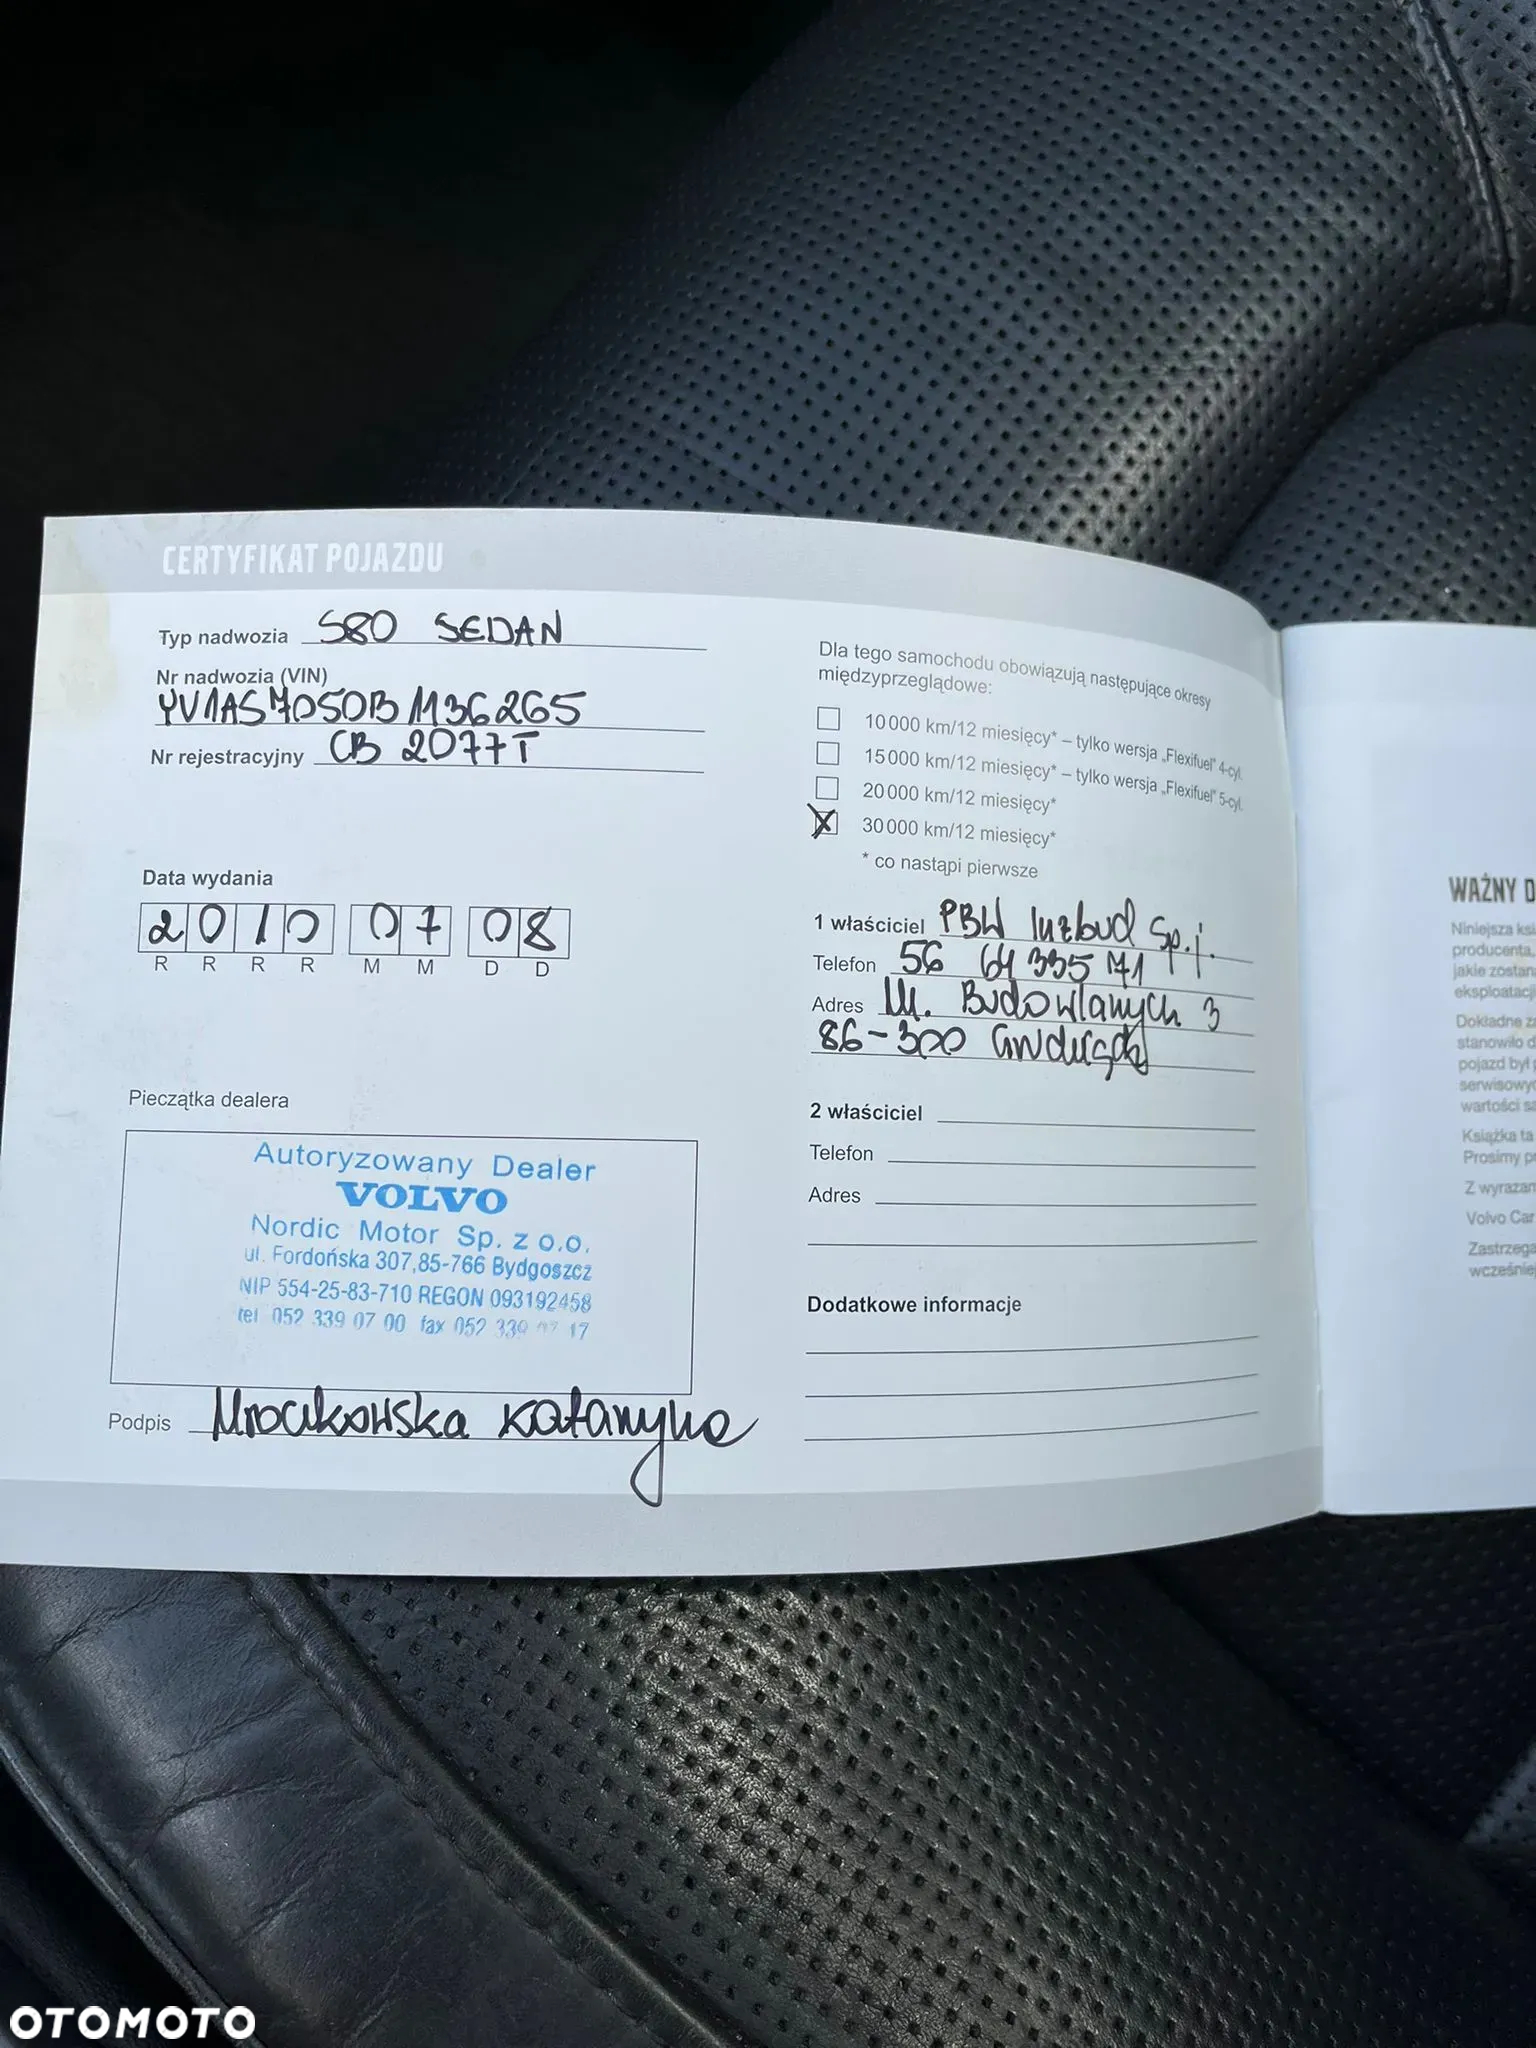 CERTYFIKAT POJAZDU
Typ nadwozia S80 SEDAN
Nr nadwozia (VIN)
YV1AS7050B1136265
Nr rejestracyjny CB 2077T
Data wydania
2010 07 08
R R R R M M D D
Pieczątka dealera
Autoryzowany Dealer
VOLVO
Nordic Motor Sp. z o.o.
ul. Fordońska 307, 85-766 Bydgoszcz
NIP 554-25-83-710 REGON 093192458
tel 052 339 07 00 fax 052 339 07 17
Podpis Mroczkowska Katarzyna
Dla tego samochodu obowiązują następujące okresy
międzyprzeglądowe:
10 000 km/12 miesięcy* – tylko wersja „Flexifuel" 4-cyl.
15 000 km/12 miesięcy* – tylko wersja „Flexifuel" 5-cyl.
20 000 km/12 miesięcy*
X 30 000 km/12 miesięcy*
* co nastąpi pierwsze
1 właściciel PBW Inzbud Sp. j.
Telefon 56 64 335 71
Adres Ul. Budowlanych 3
86-300 Grudziądz
2 właściciel
Telefon
Adres
Dodatkowe informacje
WAŻNY D
Niniejsza ksi
producenta,
jakie zostan
eksploatacji
Dokładne za
stanowiło d
pojazd był p
serwisowyc
wartości sa
Książka ta
Prosimy pr
Z wyrazan
Volvo Car
Zastrzega
wcześniej
OTOMOTO